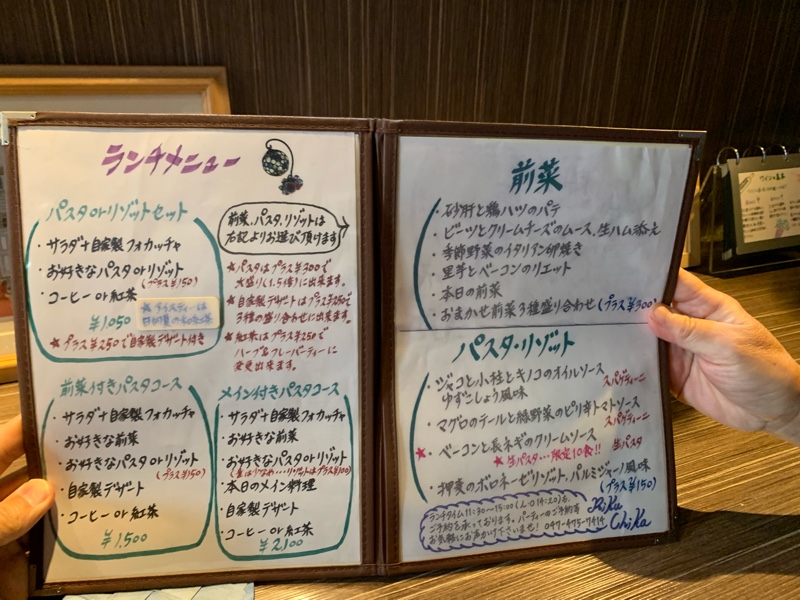 ランチメニュー
パスタorリゾットセット
・サラダ+自家製フォカッチャ
・お好きなパスタorリゾット
(プラス¥150)
・コーヒー or 紅茶
¥1,050
★アイスティーは
★プラス¥250で自家製デザート付き
前菜、パスタ、リゾットは
右記よりお選び頂けます
★パスタはプラス¥300で
大盛り(1.5倍)に出来ます。
★自家製デザートはプラス¥250で
3種の盛り合わせに出来ます。
★紅茶はプラス¥250で
ハーブ&フレーバーティーに
変更出来ます。
前菜付きパスタコース
・サラダ+自家製フォカッチャ
・お好きな前菜
・お好きなパスタorリゾット
(プラス¥150)
・自家製デザート
・コーヒー or 紅茶
¥1,500
メイン付きパスタコース
・サラダ+自家製フォカッチャ
・お好きな前菜
・お好きなパスタorリゾット
(量は少なめ…リゾットはプラス¥100)
・本日のメイン料理
・自家製デザート
・コーヒー or 紅茶
¥2,100
前菜
・砂肝と鶏ハツのパテ
・ビーツとクリームチーズのムース、生ハム添え
・季節野菜のイタリアン卵焼き
・里芋とベーコンのリエット
・本日の前菜
・おまかせ前菜3種盛り合わせ(プラス¥300)
パスタ・リゾット
・ジャコと小柱とキノコのオイルソース
ゆずこしょう風味 スパゲティーニ
・マグロのテールと緑野菜のピリ辛トマトソース
スパゲティーニ
★・ベーコンと長ネギのクリームソース
★生パスタ…限定10食!! 生パスタ
・押麦のボロネーゼリゾット、パルミジャーノ風味
(プラス¥150)
ランチタイム11:30〜15:00(L.O 14:20)も
ご予約を承っております。パーティーのご予約等
お気軽にお声かけ下さいませ! 047-475-7414
Rika
Chika